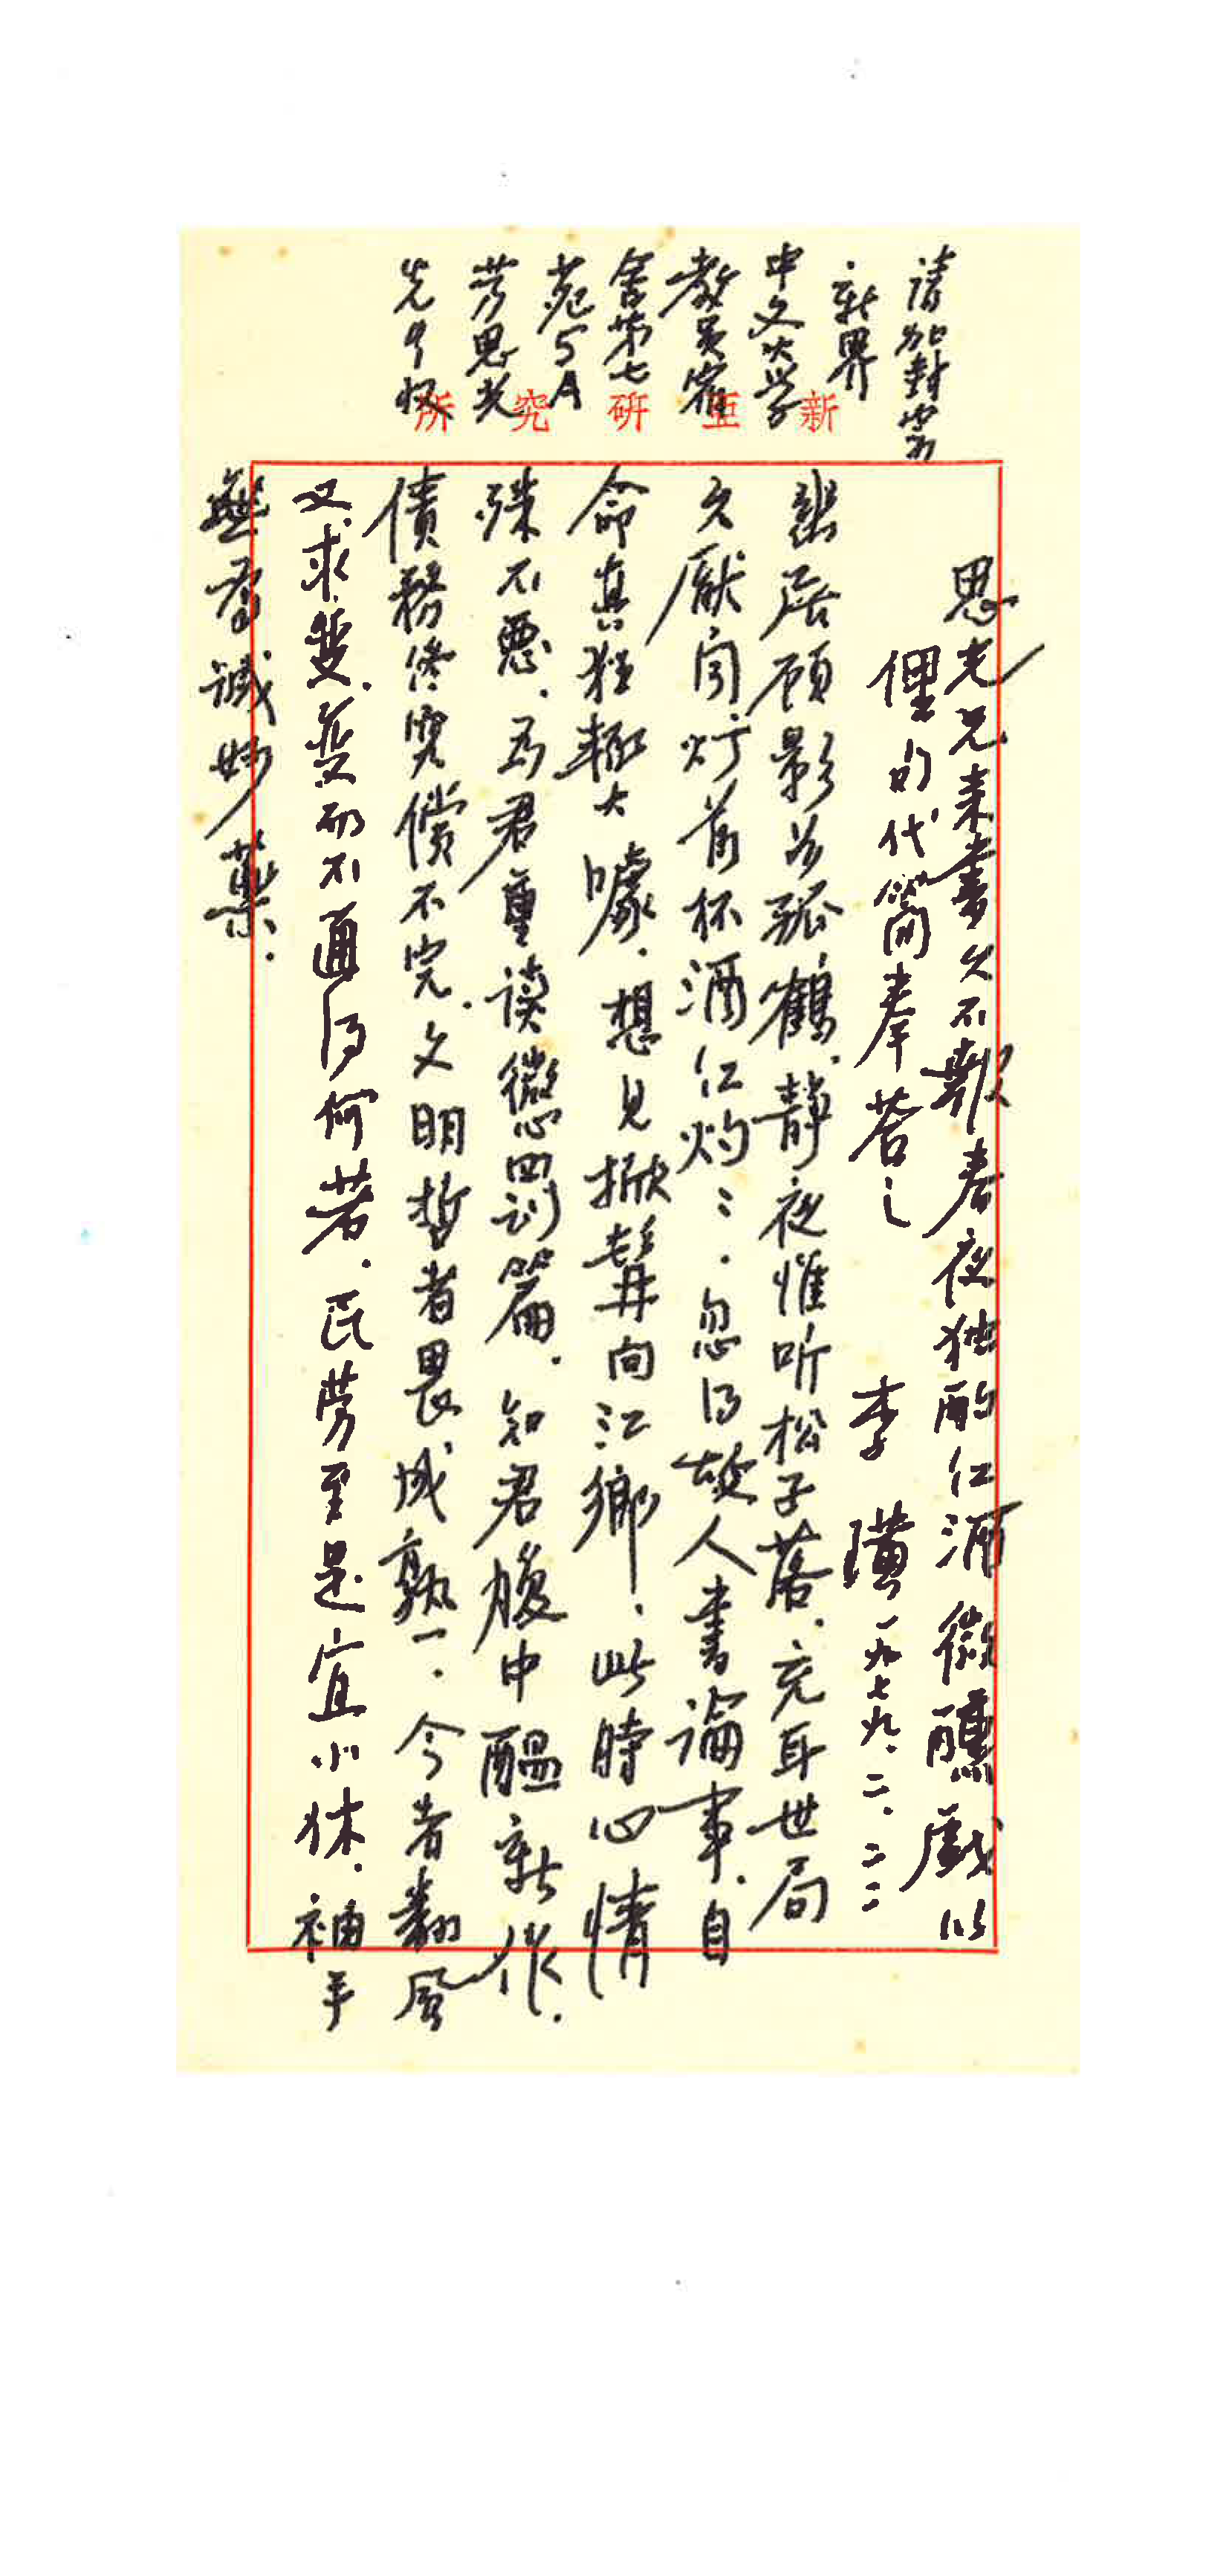 请加封寄
新界
中文大学
教员宿
舍第七
苑5A
劳思光
先生收
新亞研究所
思光兄来書久不報春夜独酌红酒微醺戲以
俚句代簡奉答之
李璜一九七九.二.二二
巖居顾影若孤鶴.静夜惟听松子落.充耳世局
久厭闻.灯前杯酒红灼〻.忽得故人書論事.自
命真狂輒大噱.想見掀髯向江鄉.此時心情
殊不惡.为君重读懲罰篇.知君腹中醞新作.
债務終究償不完.文明哲者畏成熟一.今者翻風
又求变.变而不通得何若.民劳至是宜小休.袖手
無為誠妙藥.